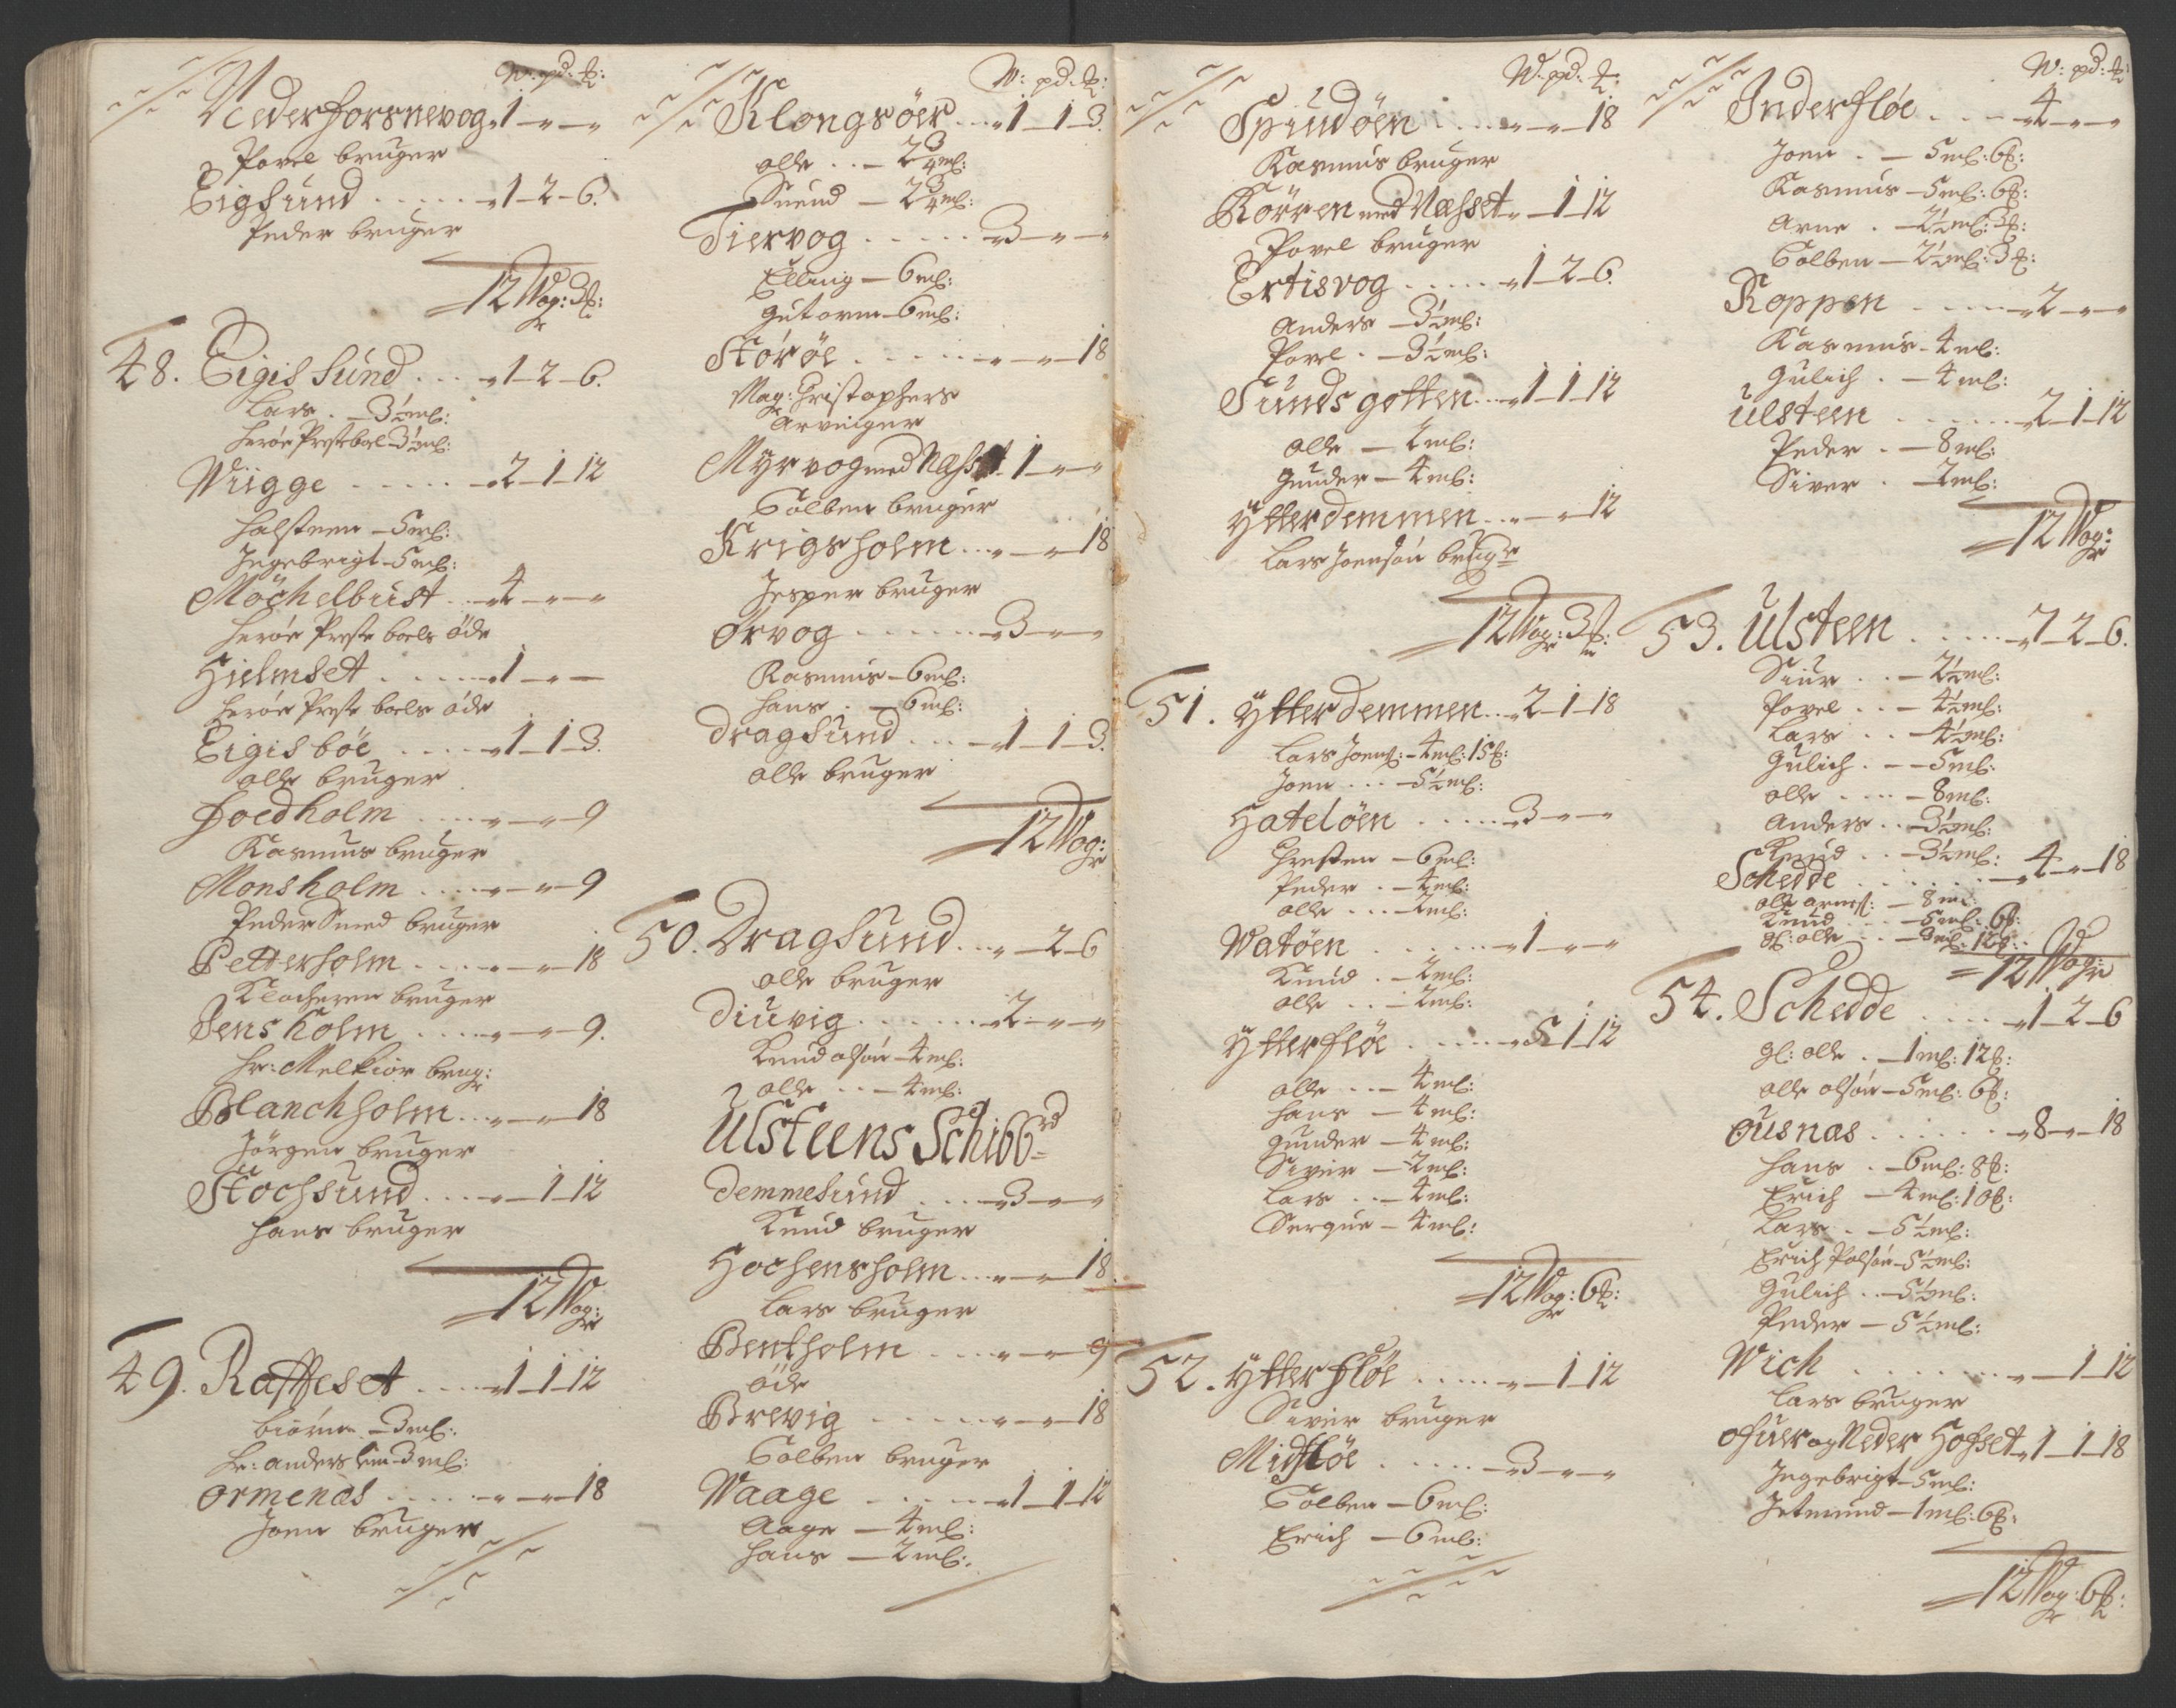 W: pd: ℔:
Nederforsnevog „1 „ „
Povel bruger
Eigsund ..... „1-2-6.
Peder bruger
12 Wog: 3℔:
48. Eigissund .... „1-2-6.
Lars . - 3½ml:
Herøe Prestebol 3½ml:
Wiigge ..... „2-1-12
Halsteen - 5ml:
Ingebrigt - 5ml:
Möchelbust .. „4 „ „
Herøe Preste bols öde
Hielmset ..... „1 „ „
Herøe Preste bols öde
Eigisböe ..... „1-1-3.
Olle bruger
Foedholm .... „ „ 9
Rasmus bruger
Monsholm .... „ „ 9
Peder Smed bruger
Petterholm .... „ „ 18
Klocheren bruger
Jensholm .... „ „ 9.
Hr: Melkior brug:
Blanchholm ... „ „ 18
Jörgen bruger
Stochsund .... „ 1-12
Hans bruger
12 Wog:
49. Raffeset .... „1-1-12
Biörn - 3ml:
Hr: Anders - 3ml:
Ormenas ..... „ „ 18
Joen bruger
W: pd: ℔:
Klongsöer ... „1-1-3.
Olle .. - 2¾ml:
Suend - 2¾ml:
Tiervog ..... „3 „ „
Elling - 6ml:
Gutorm - 6ml:
Störöe ..... „ „ 18
Mag: Christophers
Arvinger
Myrvog med Næsset „1 „ „
Tolben bruger
Krigsholm ... „ „ 18
Jesper bruger
Örvog ...... „3 „ „
Rasmus - 6ml:
Hans . - 6ml:
Dragsund .... „1-1-3.
Olle bruger
12 Wog:
50. Dragsund ... „ 2-6
Olle bruger
Diuvig ...... „2 „ „
Knud olsön - 4ml:
Olle .. - 4ml:
Ulsteens Schibbrd
Demmesund .... „3 „ „
Knud bruger
Hochensholm ... „ „ 18.
Lars bruger
Bentholm .... „ „ 9
öde
Brevig ..... „ „ 18
Tolben bruger
Waage ..... „1-1-12
Aage - 4ml:
Hans - 2ml:
W: pd: ℔:
Spiudöen .... „ „ 18
Rasmus bruger
Körren med Næsset „ 1-12
Povel bruger
Ertisvog ..... „1-2-6.
Anders - 3½ml:
Povel . - 3½ml:
Sundsgotten ... „1-1-12
Olle - 2ml:
Gunder - 4ml:
Ytterdemmen ... „ „ 12
Lars Joensön bruger
12 Wog: 3℔:
51. Ytterdemmen ... „2-1-18
Lars Joens: - 4ml: 15℔:
Joen ... - 5½ml:
Hatelöen ..... „3 „ „
Christen - 6ml:
Peder . - 4ml:
Olle ... - 2ml:
Watöen ...... „1 „ „
Knud . - 2ml:
Olle .. - 2ml:
Ytterflöe ..... „5-1-12
Olle .. - 4ml:
Hans - 4ml:
Gunder - 4ml:
Siver - 2ml:
Lars .. - 4ml:
Serque - 4ml:
12 Wog: 6℔:
52. Ytterflöe ..... „ 1-12
Siver bruger
Midflöe ..... „3 „ „
Tolben - 6ml:
Erich - 6ml:
W: pd: ℔:
Inderflöe .... „4 „ „
Joen . - 5ml: 6℔:
Rasmus - 5ml: 6℔:
Arne . - 2½ml: 3℔:
Tolben - 2½ml: 3℔:
Roppen ..... „2 „ „
Rasmus - 4ml:
Gulich . - 4ml:
Ulsteen ...... „2-1-12
Peder . - 8ml:
Siver . - 2ml:
12 Wog:
53. Ulsteen ..... „7-2-6.
Siur .. - 2½ml:
Povel .. - 4½ml:
Lars .. - 4½ml:
Gulich . - 5ml:
Olle .... - 8ml:
Anders .. - 3½ml:
Knud .. - 3½ml:
Schedde ...... „4 „ 18
Olle arnes: - 8ml:
Knud ... - 5ml: 6℔:
Gl: olle .. - 3ml: 12℔:
12 Wog:
54. Schedde .... „1-2-6
Gl: olle . - 1ml: 12℔:
Olle olsön - 5ml: 6℔:
Ousnas ...... „8 „ 18
Hans . - 6ml: 8℔:
Erich - 4ml: 10℔:
Lars .. - 5½ml:
Erich Polsön - 5½ml:
Gulich .. - 5½ml:
Peder - 5½ml:
Wich ....... „ 1-12
Lars bruger
Ofuer og Neder Hofset „1-1-18
Ingebrigt - 5ml:
Jetmund - 1ml: 6℔:
12 Wog: 6℔: